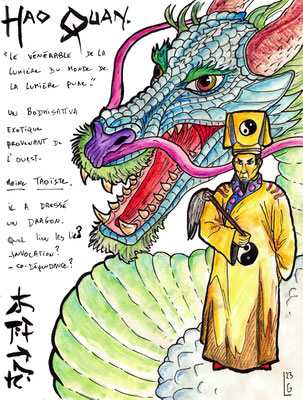 HAO QUAN.
"LE VÉNÉRABLE DE LA
LUMIÈRE DU MONDE DE
LA LUMIÈRE PURE."
UN BODHISATTVA
EXOTIQUE
PROVENANT DE
L'OUEST.
MOINE TAOÏSTE.
IL A DRESSÉ
UN DRAGON.
QUEL LIEN LES LIE?
- INVOCATION?
- CO-DÉPENDANCE?
23
G